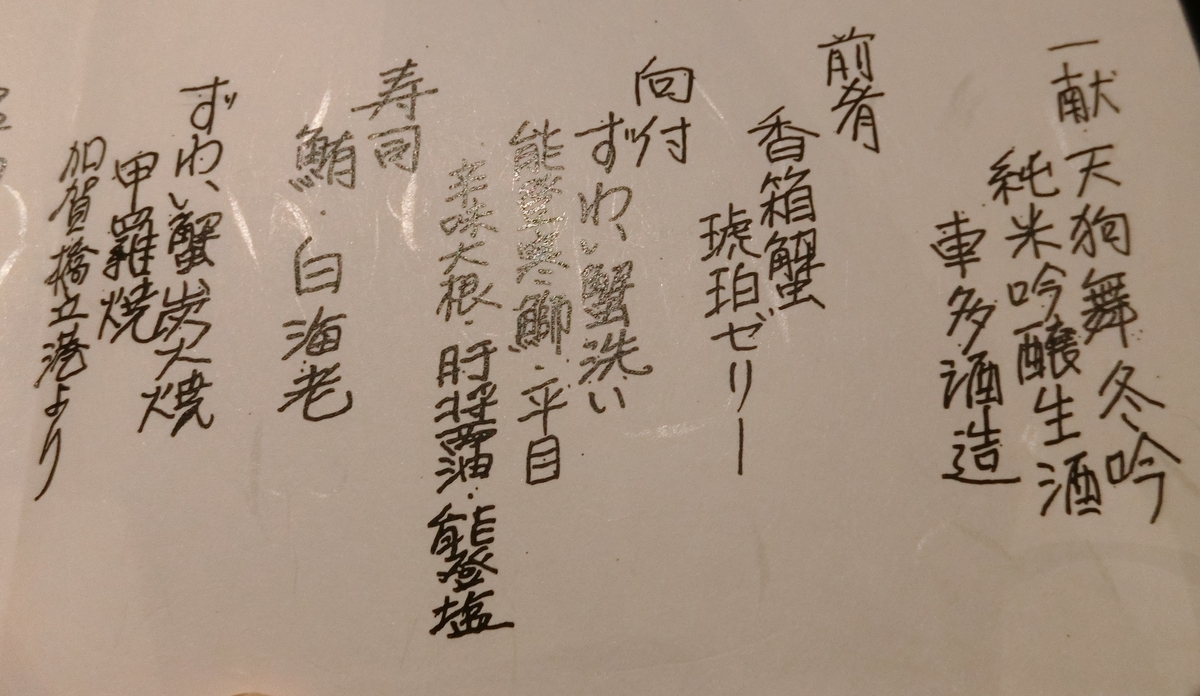 一献 天狗舞 冬吟
純米吟醸生酒
車多酒造
前肴
香箱蟹
琥珀ゼリー
向付
ずわい蟹洗い
能登寒鰤・平目
辛味大根・肝醤油・能登塩
寿司
鮪・白海老
ずわい蟹炭火焼
甲羅焼
加賀橋立港より